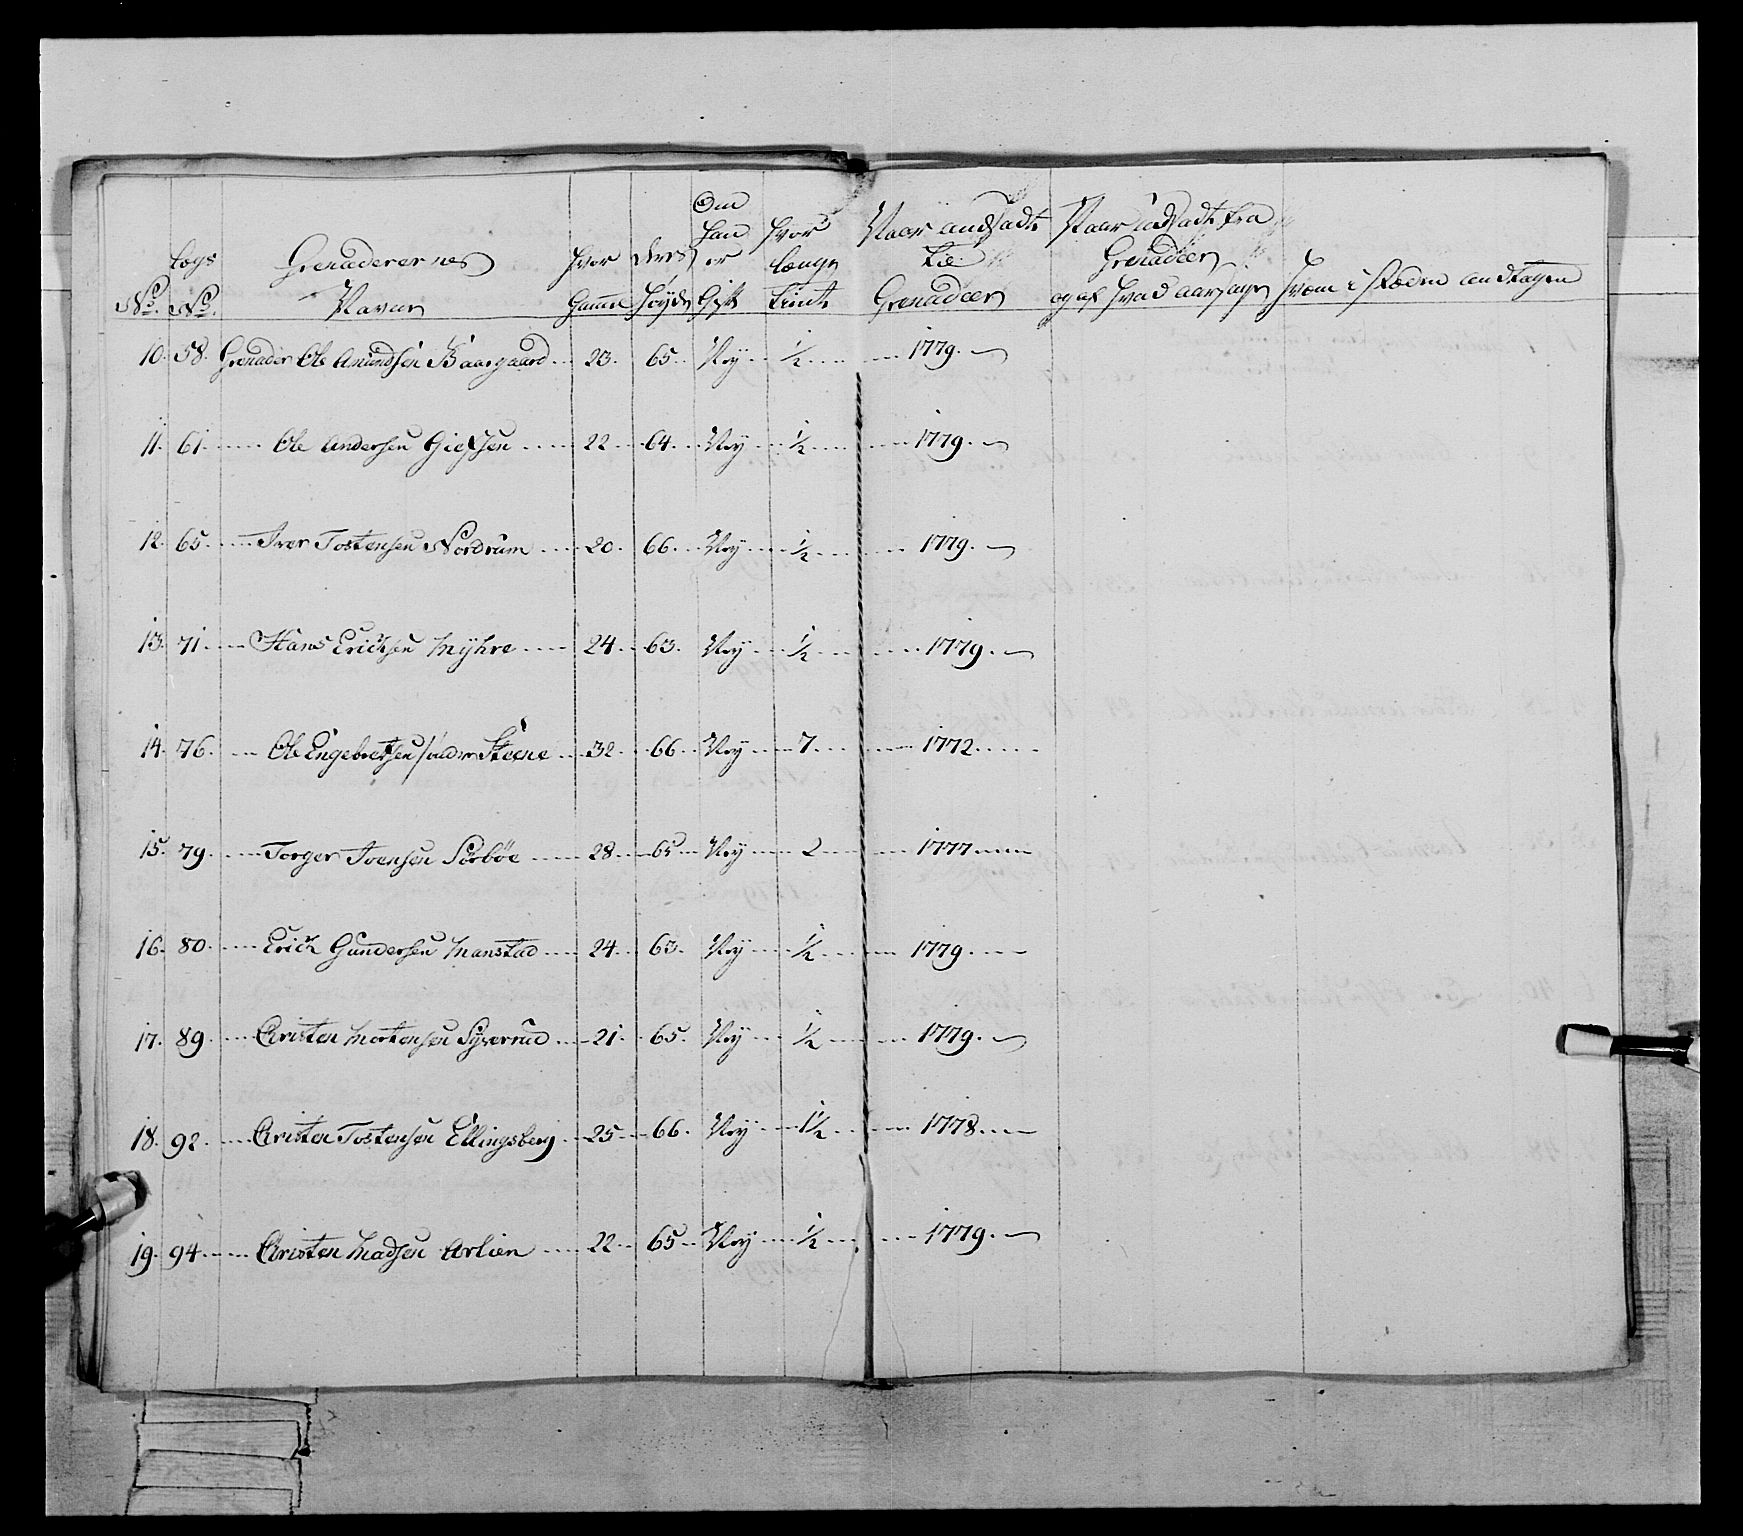 No. Lægs No. Grenaderernes Navne Hvor Gamle Deres Høyde Om han er Gift Hvor længe tient Naar andsadt til Grenadeer Naar udsadt fra Grenadeer og af hvad aarsage hvem i stæden andtagen
10. 58. Grenader Ole Amundsen Baargaard 23. 65. Ney ½ 1779.
11. 61. Ole Andersen 22 64 Ney ½ 1779.
12. 65. Iver Tostensen Nordrum 20. 66. Ney ½ 1779.
13. 71. Hans Erichsen Myhre 24. 63. Ney ½ 1779.
14. 76. Ole Engebretsen Steene 32 66 Ney 7 1772.
15. 79. Torger Joensen Sørbøe 28. 65 Ney 2 1777
16. 80. Erich Gundersen Manstad 24. 63. Ney ½ 1779.
17. 89. Christen Mortensen Syverrud 21. 65. Ney ½ 1779.
18. 92. Christen Tostensen Ellingsberg 25 66. Ney 1½ 1778.
19. 94. Christen Madsen Arlien 22 65 Ney ½ 1779.